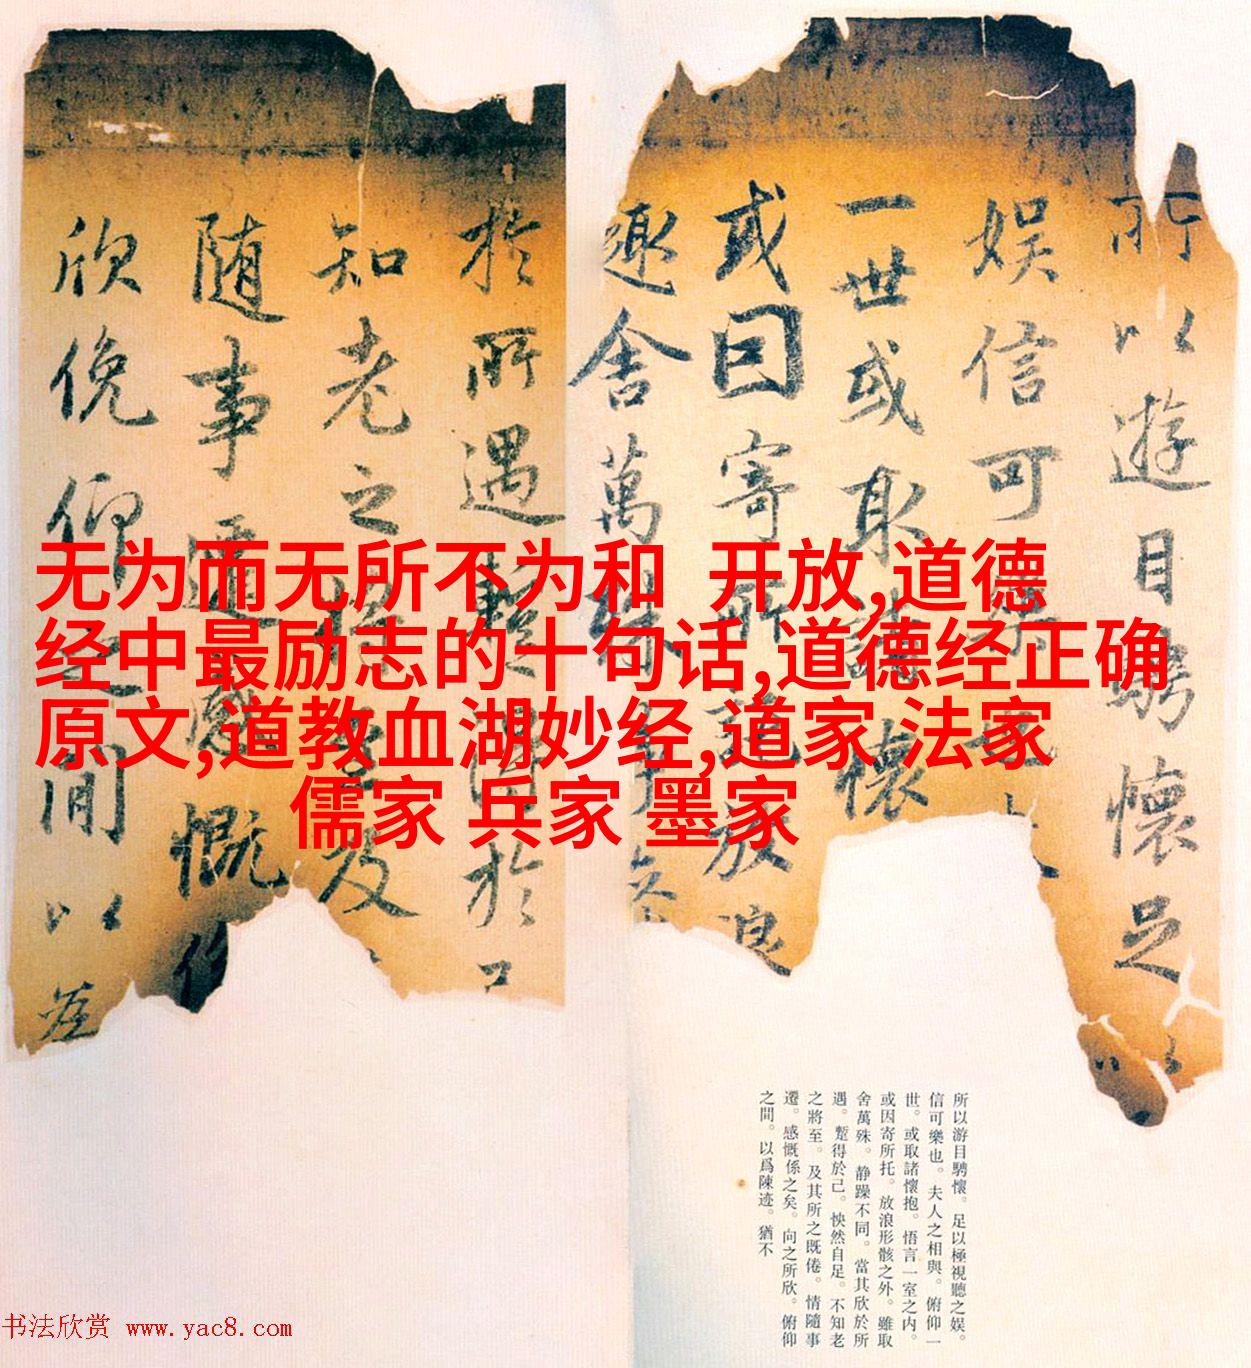 无为而无所不为和 开放,道德
经中最励志的十句话,道德经正确
原文,道教血湖妙经,道家 法家
儒家 兵家 墨家
所以遊目騁懷足
娱信可樂也
一世或取諸懷
或因寄所託放浪
趣舍萬殊静
於所遇蹔得於己
知老之將至及
随事遷感慨係
欣俛仰之間以為
所以游目騁懷。足以極視聽之娱。
信可樂也。夫人之相與。俯仰一
世。或取諸懷抱。悟言一室之内。
或因寄所托。放浪形骸之外。雖取
舍萬殊。静躁不同。當其欣於所
遇。蹔得於己。怏然自足。不知老
之將至。及其所之既倦。情隨事
遷。感慨係之矣。向之所欣。俯仰
之間。以爲陳迹。猶不
书法欣赏 www.yac8.com